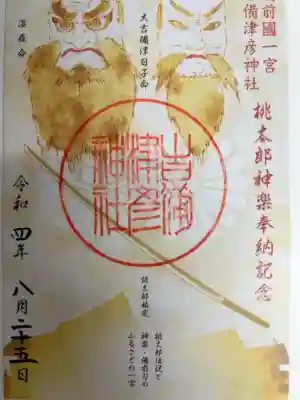 前國一宮
備津彦神社
桃太郎神楽奉納記念
大吉備津日子命
温羅命
吉備津彦神社
桃太郎伝説と
神楽・備前刀の
ふるさとの一宮
令和四年
八月二十五日